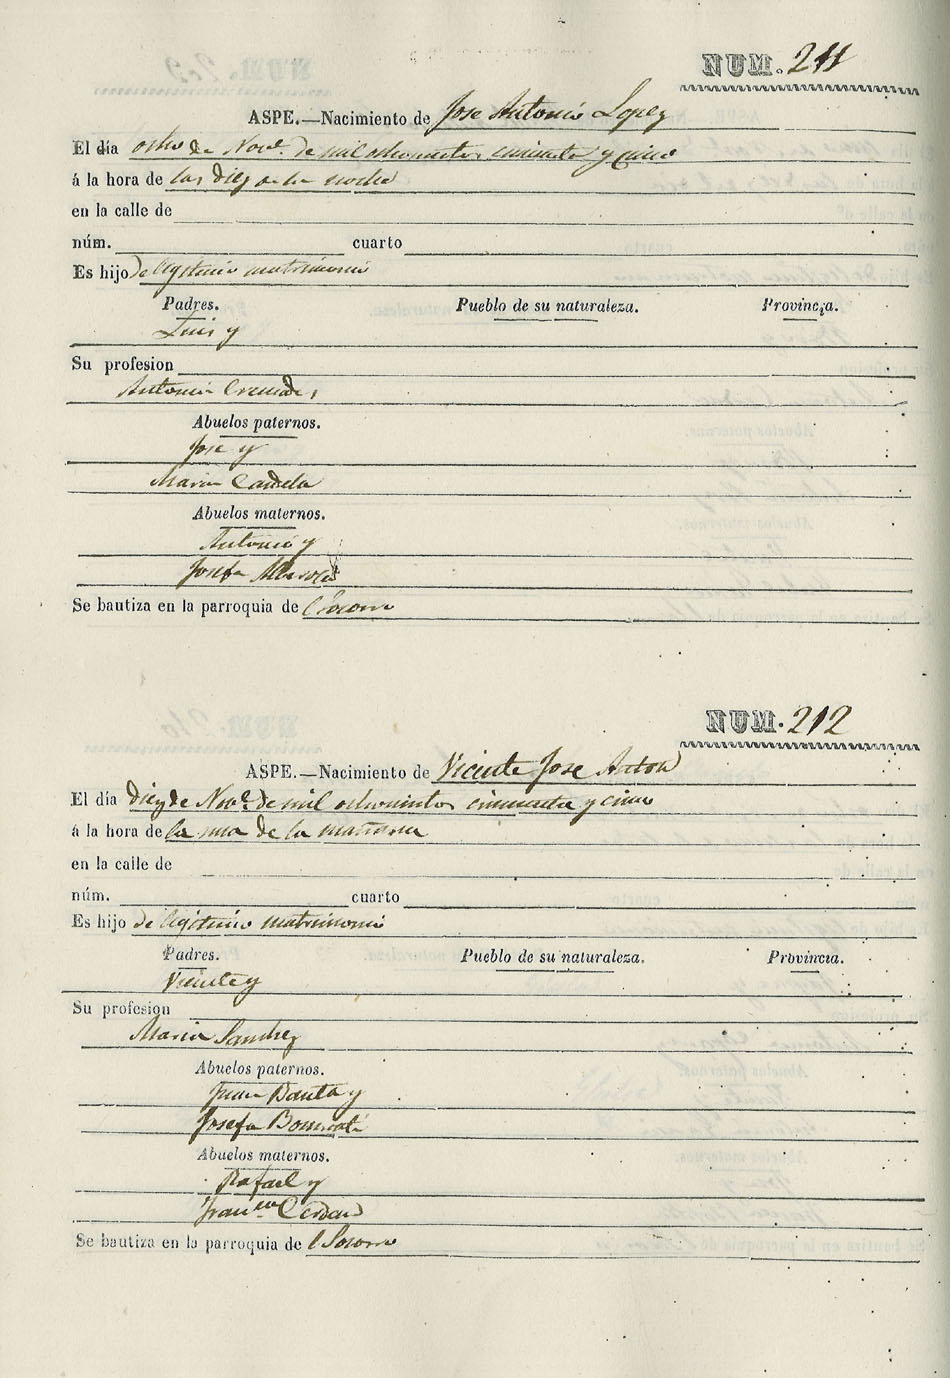 NUM. 211
ASPE.—Nacimiento de Jose Antonio Lopez
El día ocho de Nove. de mil ochocientos cincuenta y cinco
á la hora de las diez de la noche
en la calle de
núm. cuarto
Es hijo de legitimo matrimonio
Padres. Pueblo de su naturaleza. Provincia.
Luis y
Su profesion
Antonia Cremades
Abuelos paternos.
Jose y
Maria Candela
Abuelos maternos.
Antonio y
Josefa
Se bautiza en la parroquia de l Socorro
NUM. 212
ASPE.—Nacimiento de Vicente Jose Anton
El día diez de Nove. de mil ochocientos cincuenta y cinco
á la hora de la una de la mañana
en la calle de
núm. cuarto
Es hijo de legitimo matrimonio
Padres. Pueblo de su naturaleza. Provincia.
Vicente y
Su profesion
Maria Sanchez
Abuelos paternos.
Juan Bauta y
Josefa Bonmati
Abuelos maternos.
Rafael y
Franca. Cerdan
Se bautiza en la parroquia de l Socorro